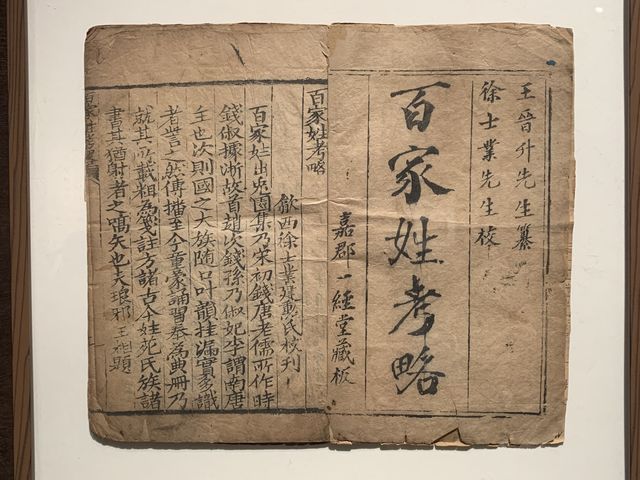 王晉升先生纂
徐士業先生校
百家姓考略
嘉郡一經堂藏板
百家姓考略
歙西徐士業建勳氏校刊
百家姓出兎園集乃宋初錢唐老儒所作時
錢俶據淅故首趙次錢孫乃俶妃李謂南唐
主也次則國之大族隨口叶韻挂漏實多識
者訾之然傳播至今童蒙誦習奉為典冊乃
就其所載粗為箋註方諸古今姓苑氏族諸
書其猶射者之嚆矢也夫琅邪王相題